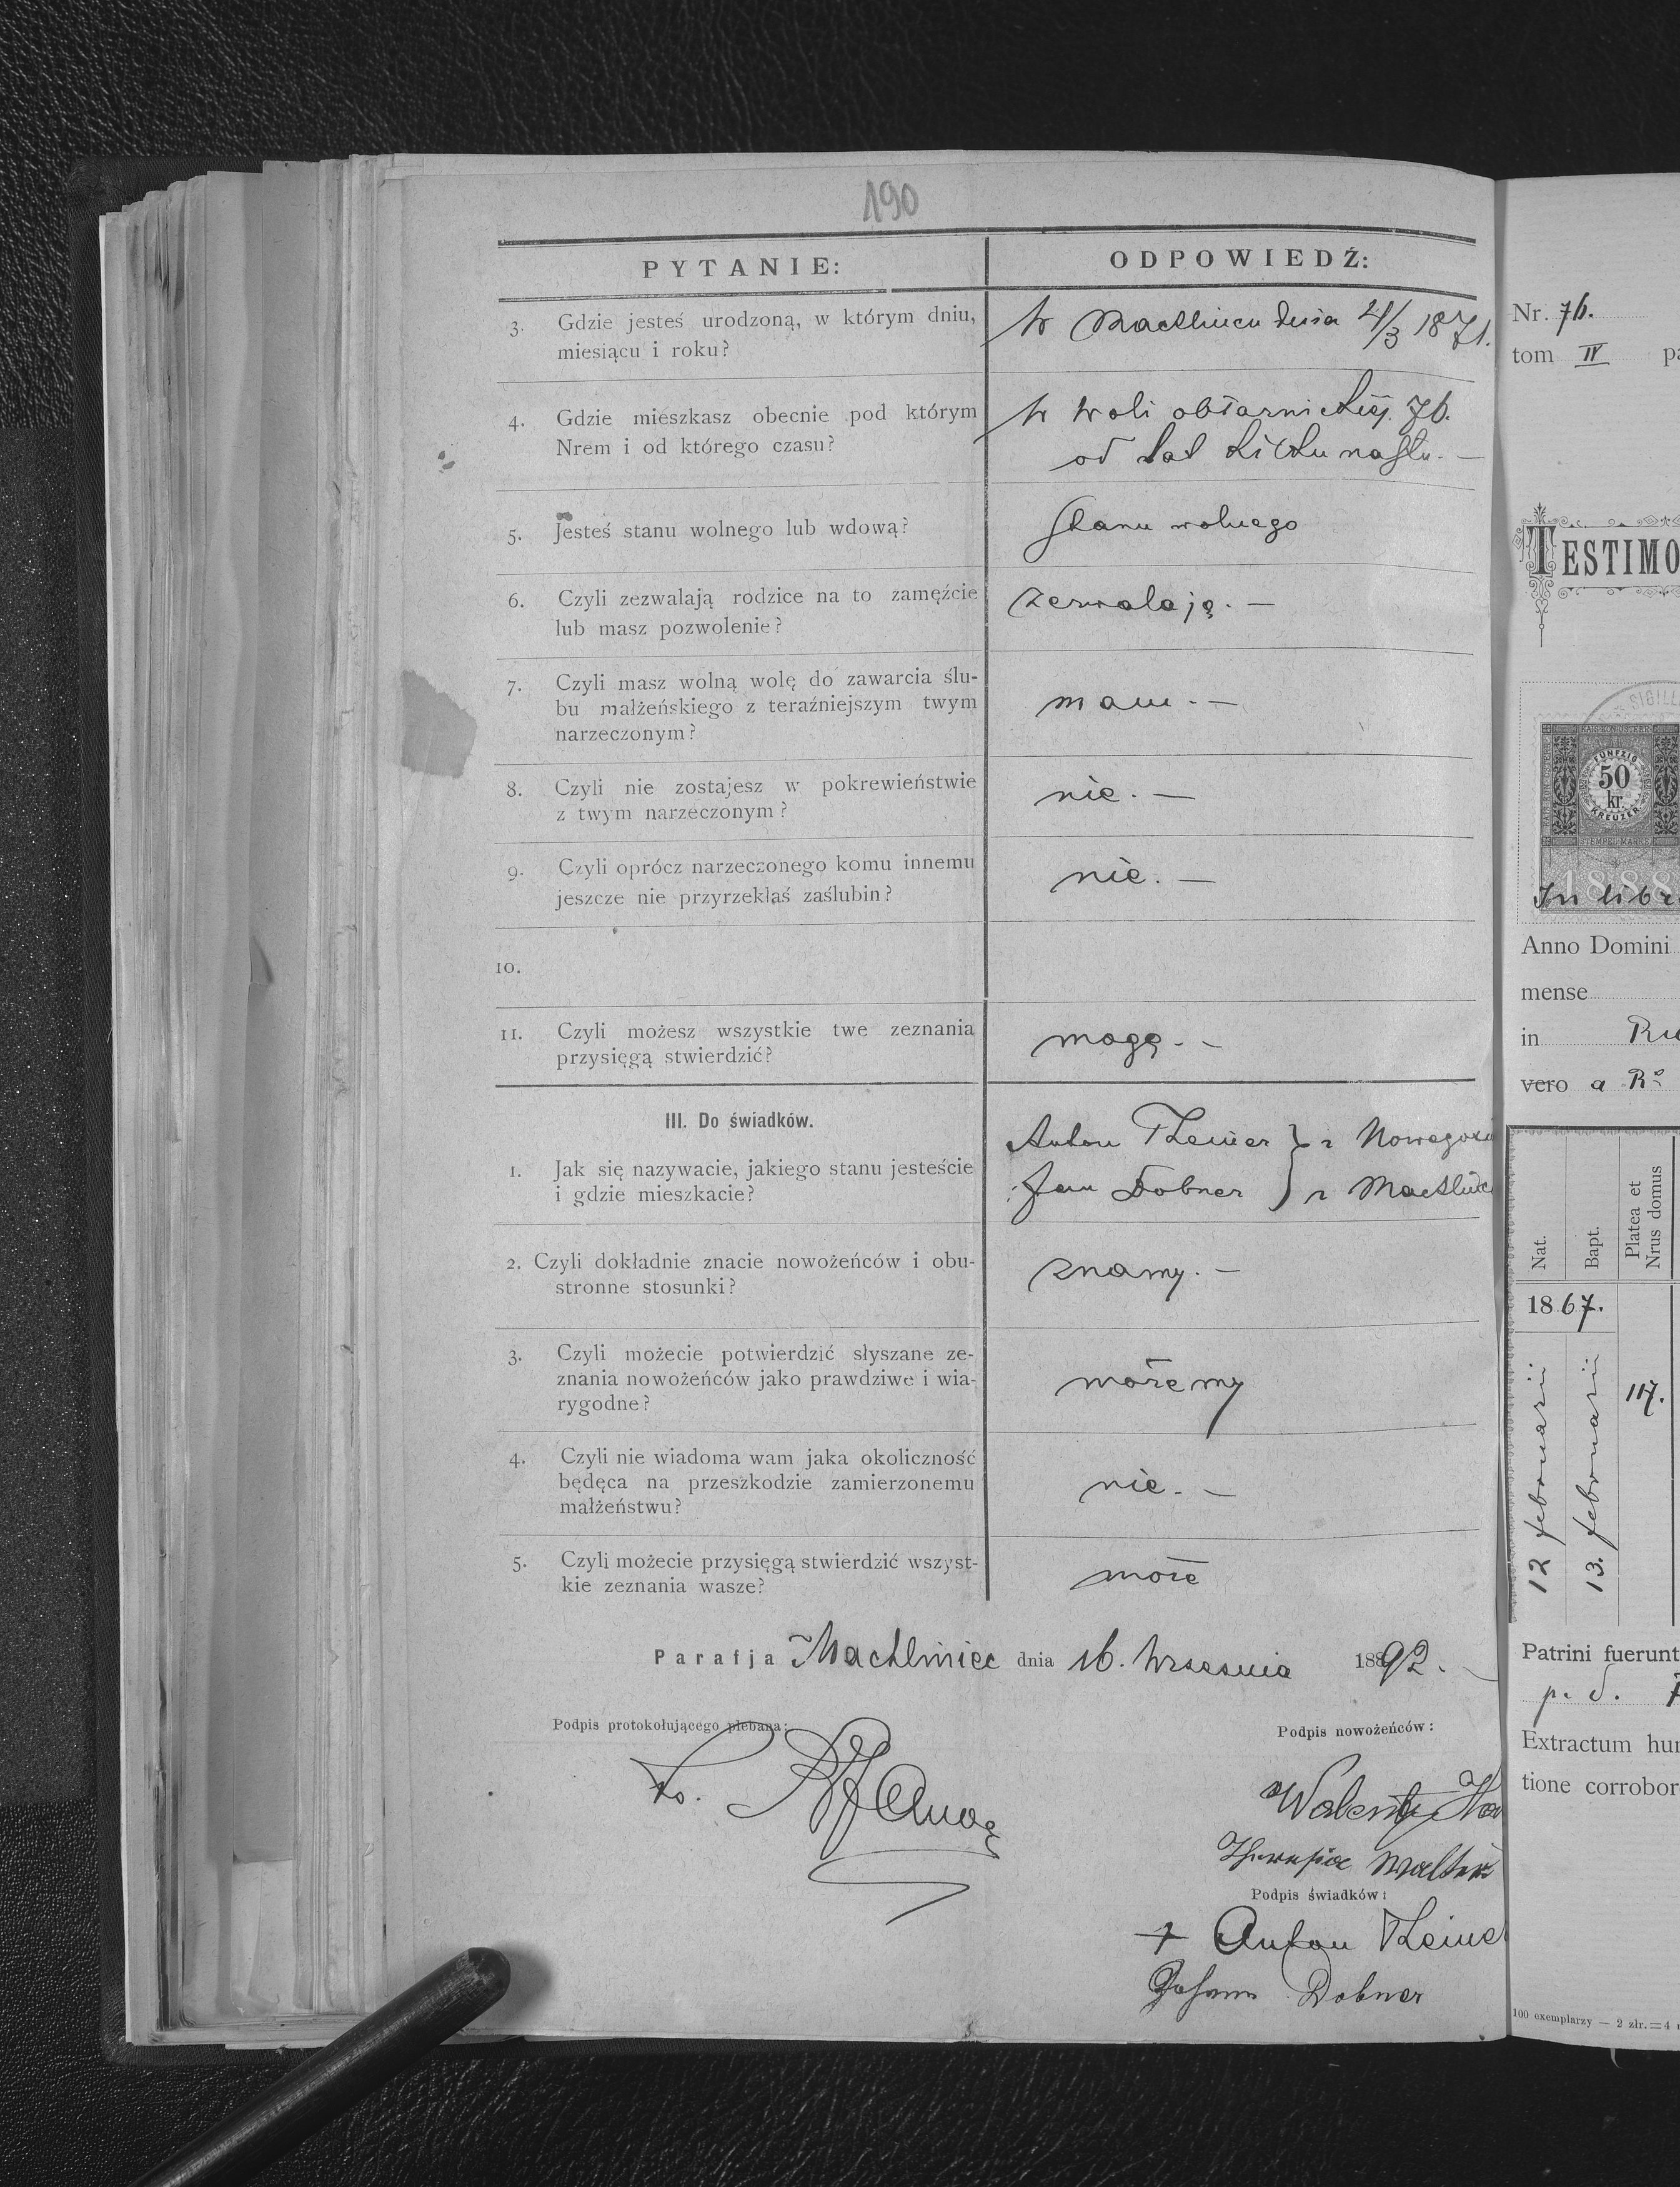 190
PYTANIE:
ODPOWIEDŹ:
3. Gdzie jesteś urodzoną, w którym dniu,
miesiącu i roku?
w Machlincu dnia 21/3 1871.
4. Gdzie mieszkasz obecnie pod którym
Nrem i od którego czasu?
w Woli obłaznickiej. 76.
od lat kilkunastu. —
5. Jesteś stanu wolnego lub wdową?
Stanu wolnego
6. Czyli zezwalają rodzice na to zamęźcie
lub masz pozwolenie?
zezwalają. —
7. Czyli masz wolną wolę do zawarcia ślu-
bu małżeńskiego z teraźniejszym twym
narzeczonym?
mam. —
8. Czyli nie zostajesz w pokrewieństwie
z twym narzeczonym?
nie. —
9. Czyli oprócz narzeczonego komu innemu
jeszcze nie przyrzekłaś zaślubin?
nie. —
10.
11. Czyli możesz wszystkie twe zeznania
przysięgą stwierdzić?
mogę. —
III. Do świadków.
1. Jak się nazywacie, jakiego stanu jesteście
i gdzie mieszkacie?
Anton Theiner } z Nowego
Jan Dobner } z Machlińc
2. Czyli dokładnie znacie nowożeńców i obu-
stronne stosunki?
znamy. —
3. Czyli możecie potwierdzić słyszane ze-
znania nowożeńców jako prawdziwe i wia-
rygodne?
możemy
4. Czyli nie wiadoma wam jaka okoliczność
będęca na przeszkodzie zamierzonemu
małżeństwu?
nie. —
5. Czyli możecie przysięgą stwierdzić wszyst-
kie zeznania wasze?
może
Parafja Machliniec dnia 16. Września 1892.
Podpis protokołującego plebana:
Podpis nowożeńców:
Walenty
Theresia Walter
Podpis świadków:
+ Anton Theine
Johann Dobner
Nr. 76.
tom IV pa
TESTIMO
SIGILL
FÜNFZIG
50
kr.
KREUZER
STEMPELMARKE
1888
In libr
Anno Domini
mense
in Ru
vero a R°
Nat.
Bapt.
Platea et
Nrus domus
1867.
12 februarii
13. februarii
117.
Patrini fuerunt
p. d.
Extractum hu
tione corrobor
100 exemplarzy — 2 złr. = 4